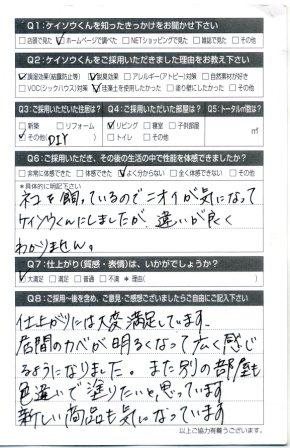 Q1:ケイソウくんを知ったきっかけをお聞かせ下さい
□店頭で見た ☑ホームページで調べた □NETショッピングで見た □雑誌で見た □その他
Q2:ケイソウくんをご採用いただきました理由をお教え下さい
☑調湿効果(結露防止等) ☑脱臭効果 □アレルギー(アトピー)対策 □自然素材が好き
□VOC(シックハウス)対策 ☑珪藻土を使用したかった □塗り壁にしたかった □その他
Q3:ご採用いただいた住居は?
□新築 □リフォーム
☑その他( DIY )
Q4:ご採用いただいた部屋は?
☑リビング □寝室 □子供部屋
□トイレ □その他
Q5:トータル㎡数は?
㎡
Q6:ご採用いただき、その後の生活の中で性能を体感できましたか?
□非常に体感できた □体感できた ☑よく分からない □全く体感できない □その他
*具体的に明記下さい
ネコを飼っているのでニオイが気になって
ケイソウくんにしましたが、違いが良く
わかりません。
Q7:仕上がり(質感・表情)は、いかがでしょうか?
☑大満足 □満足 □普通 □不満 *理由( )
Q8:ご採用〜後を含め、ご意見・ご感想ございましたらご自由にご記入下さい
仕上がりには大変満足しています。
居間のカベが明るくなって広く感じ
るようになりました。また別の部屋も
色違いで塗りたいと思っています
新しい商品も気になっています
以上ご協力有難うございます。